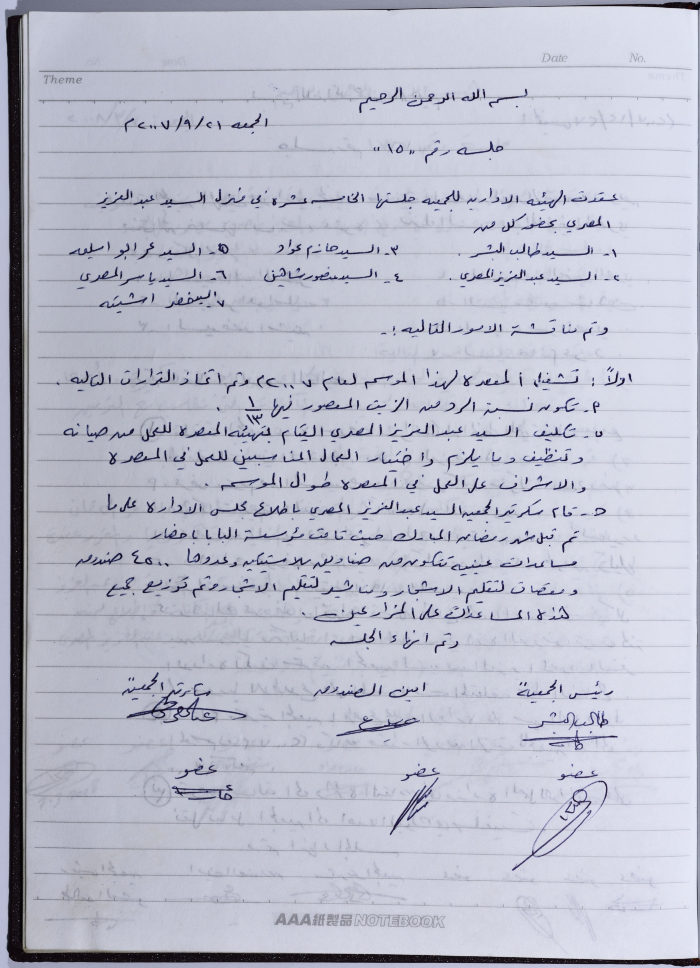 Date No.
Theme
بسم الله الرحمن الرحيم
الجمعه ٢٠٠٧/٩/٢١م
جلسه رقم "١٥"
عقدت الهيئه الاداريه للجمعيه جلستها الخامسه عشره في منزل السيد عبد العزيز
المصري بحضور كل من
١- السيد طالب البشر . ٣- السيد حازم عواد ٥- السيد عمر ابو اسليمه
٢- السيد عبد العزيز المصري . ٤- السيد منصور شاهين ٦- السيد ياسر المصري
٧- السيد خضر اشتيه
وتم مناقشة الامور التاليه :-
اولاً : تشغيل المعصرة لهذا الموسم لعام ٢٠٠٧م وتم اتخاذ القرارات التاليه .
٢- تكون نسبة الرد من الزيت المعصور فيها ١/١٣ .
ب- تكليف السيد عبد العزيز المصري القيام بتهيئه المعصره للعمل من صيانه
وتنظيف وما يلزم واختيار العمال المناسبين للعمل في المعصرة
والاشراف على العمل في المعصره طوال الموسم .
ج- قام سكرتير الجمعيه السيد عبد العزيز المصري باطلاع مجلس الاداره على ما
تم قبل شهر رمضان المبارك حيث قامت مؤسسة البابا باحضار
مساعدات عينيه تتكون من صناديق بلاستيكيه وعددها ٤٥٠٠ صندوق
ومقصات لتقليم الاشجار ومناشير لتقليم الاشجار وتم توزيع جميع
هذه المساعدات على المزارعين .
وتم انهاء الجلسه
رئيس الجمعية امين الصندوق سكرتير الجمعية
طالب البشر
عضو عضو عضو
AAA紙製品 NOTEBOOK